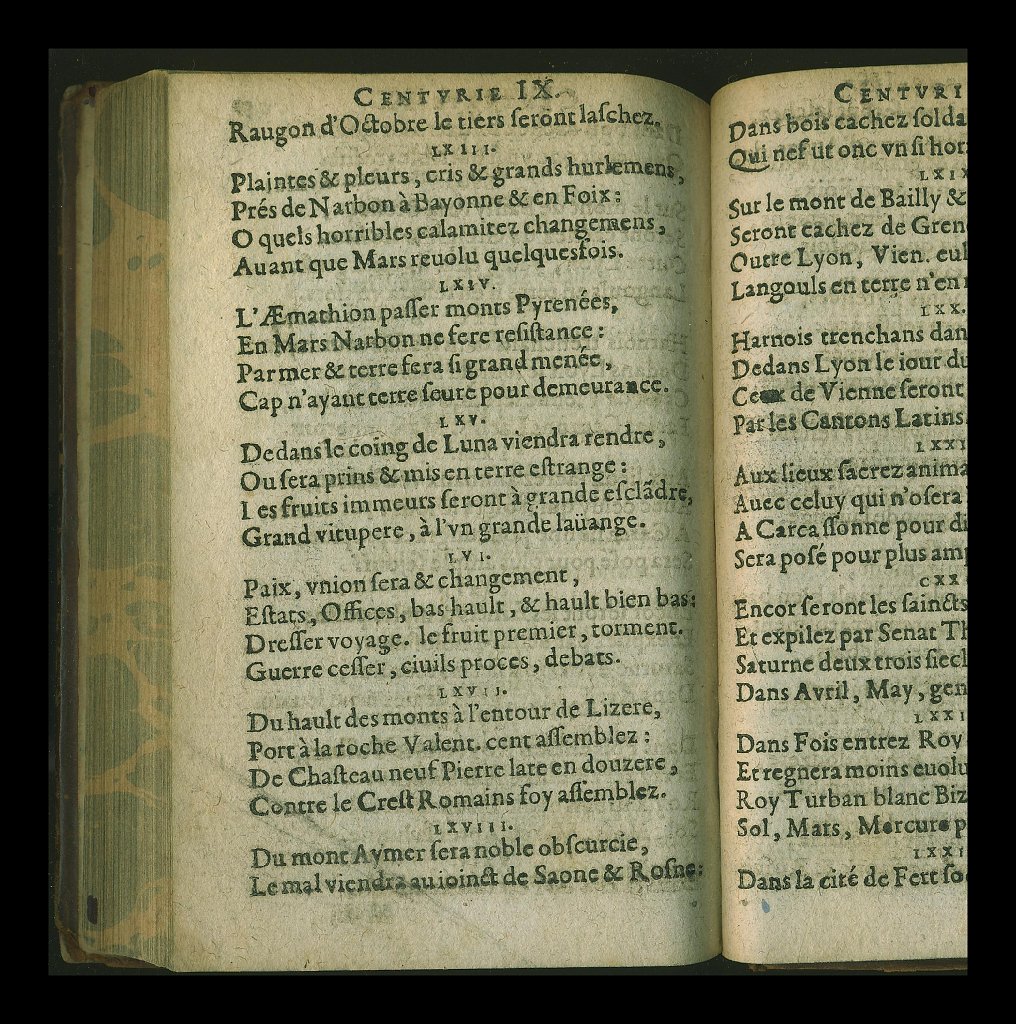 CENTVRIE IX.
Raugon d'Octobre le tiers seront laschez.
LXIII.
Plaintes & pleurs, cris & grands hurlemens,
Prés de Narbon à Bayonne & en Foix:
O quels horribles calamitez changemens,
Auant que Mars reuolu quelquesfois.
LXIV.
L'Æmathion passer monts Pyrenées,
En Mars Narbon ne fere resistance:
Par mer & terre fera si grand menée,
Cap n'ayant terre seure pour demeurance.
LXV.
Dedans le coing de Luna viendra rendre,
Ou sera prins & mis en terre estrange:
Les fruits immeurs seront à grande esclãdre,
Grand vitupere, à l'vn grande laüange.
LVI.
Paix, vnion sera & changement,
Estats, Offices, bas hault, & hault bien bas:
Dresser voyage. le fruit premier, torment.
Guerre cesser, ciuils proces, debats.
LXVII.
Du hault des monts à l'entour de Lizere,
Port à la roche Valent. cent assemblez:
De Chasteau neuf Pierre late en douzere,
Contre le Crest Romains foy assemblez.
LXVIII.
Du mont Aymer sera noble obscurcie,
Le mal viendra au ioinct de Saone & Rosne:
CENTVRI
Dans bois cachez solda
Qui nefut onc vn si hor
LXIX
Sur le mont de Bailly &
Seront cachez de Gren
Outre Lyon, Vien. eul
Langouls en terre n'en
LXX.
Harnois trenchans dan
Dedans Lyon le iour du
Ceux de Vienne seront
Par les Cantons Latins
LXXI
Aux lieux sacrez anima
Auec celuy qui n'osera
A Carcassonne pour di
Sera posé pour plus amp
CXX
Encor seront les saincts
Et expilez par Senat Th
Saturne deux trois siecl
Dans Avril, May, gen
LXXI
Dans Fois entrez Roy
Et regnera moins euolu
Roy Turban blanc Biz
Sol, Mars, Mercure p
LXXI
Dans la cité de Fert so